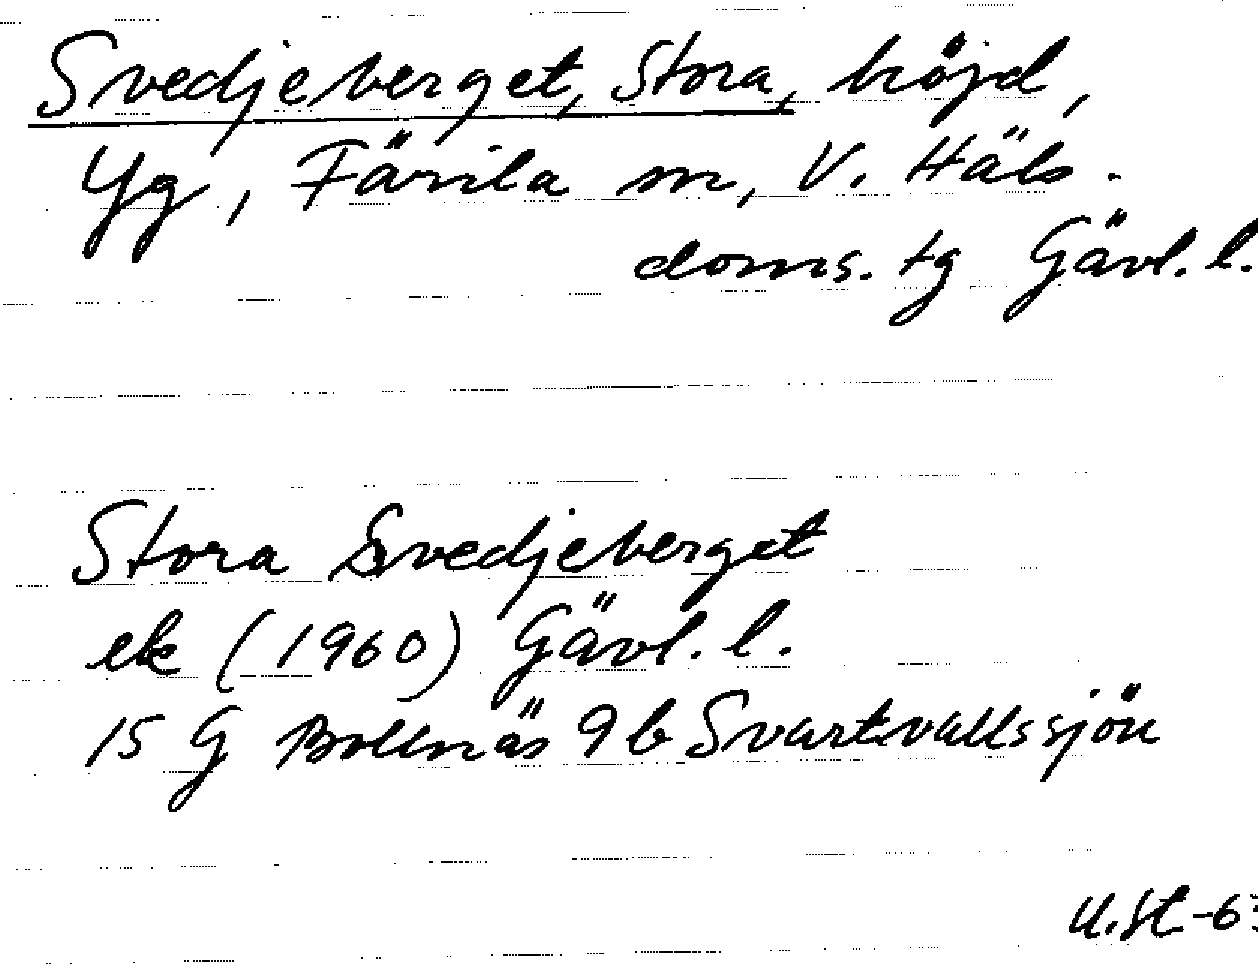 Svedjeberget, Stora, höjd,
Yg, Färila sn, V. Häls.
doms. tg Gävl. l.
Stora Svedjeberget
ek (1960) Gävl. l.
15 G Bollnäs 9b Svartvallssjön
U.St.-63